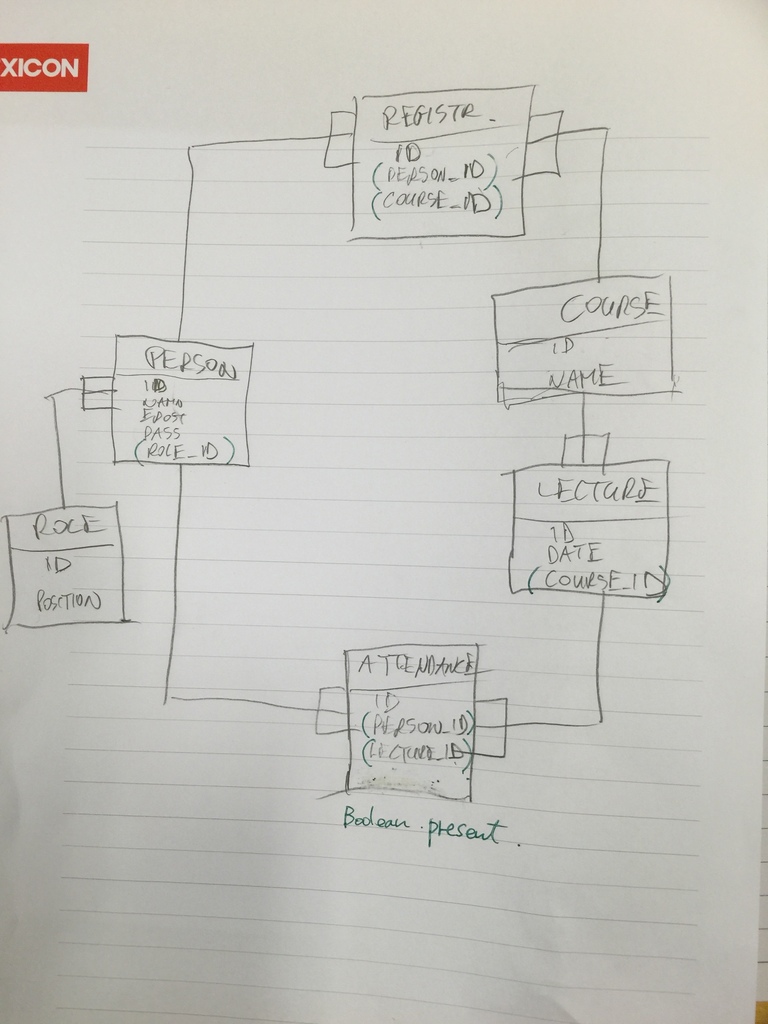 XICON
REGISTR.
ID
(PERSON_ID)
(COURSE_ID)
COURSE
ID
NAME
PERSON
ID
NAMN
EPOST
PASS
(ROLE_ID)
LECTURE
ID
DATE
(COURSE_ID)
ROLE
ID
POSITION
ATTENDANCE
ID
(PERSON_ID)
(LECTURE_ID)
Boolean present.